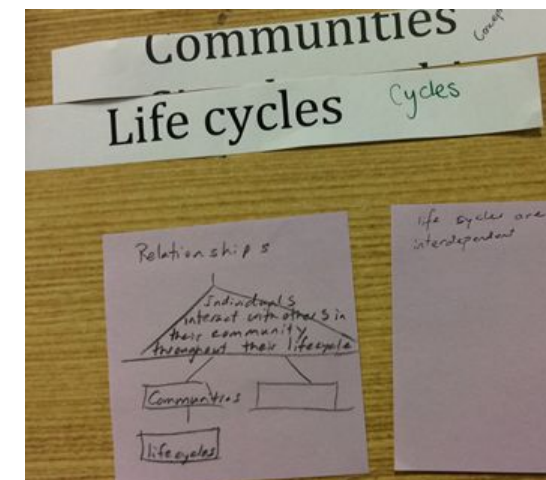 Communities
Life cycles Cycles
Relationships
Individuals
interact with others in
their community
throughout their lifecycle
Communities
lifecycles
life cycles are
interdependent